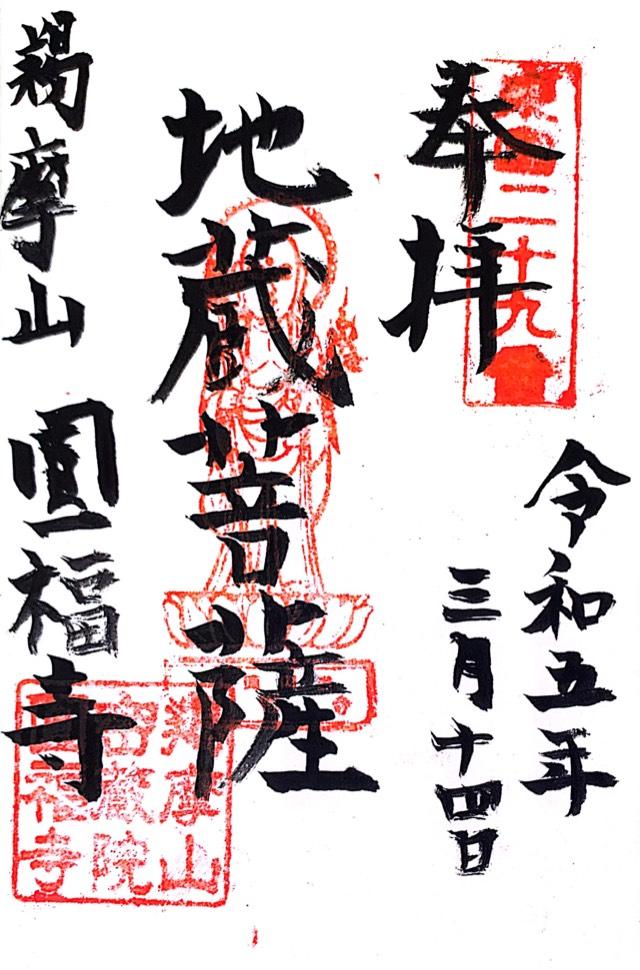 奉拝
二十九
令和五年
三月十四日
地蔵菩薩
羯摩山 圓福寺
羯摩山
密蔵院
圓福寺